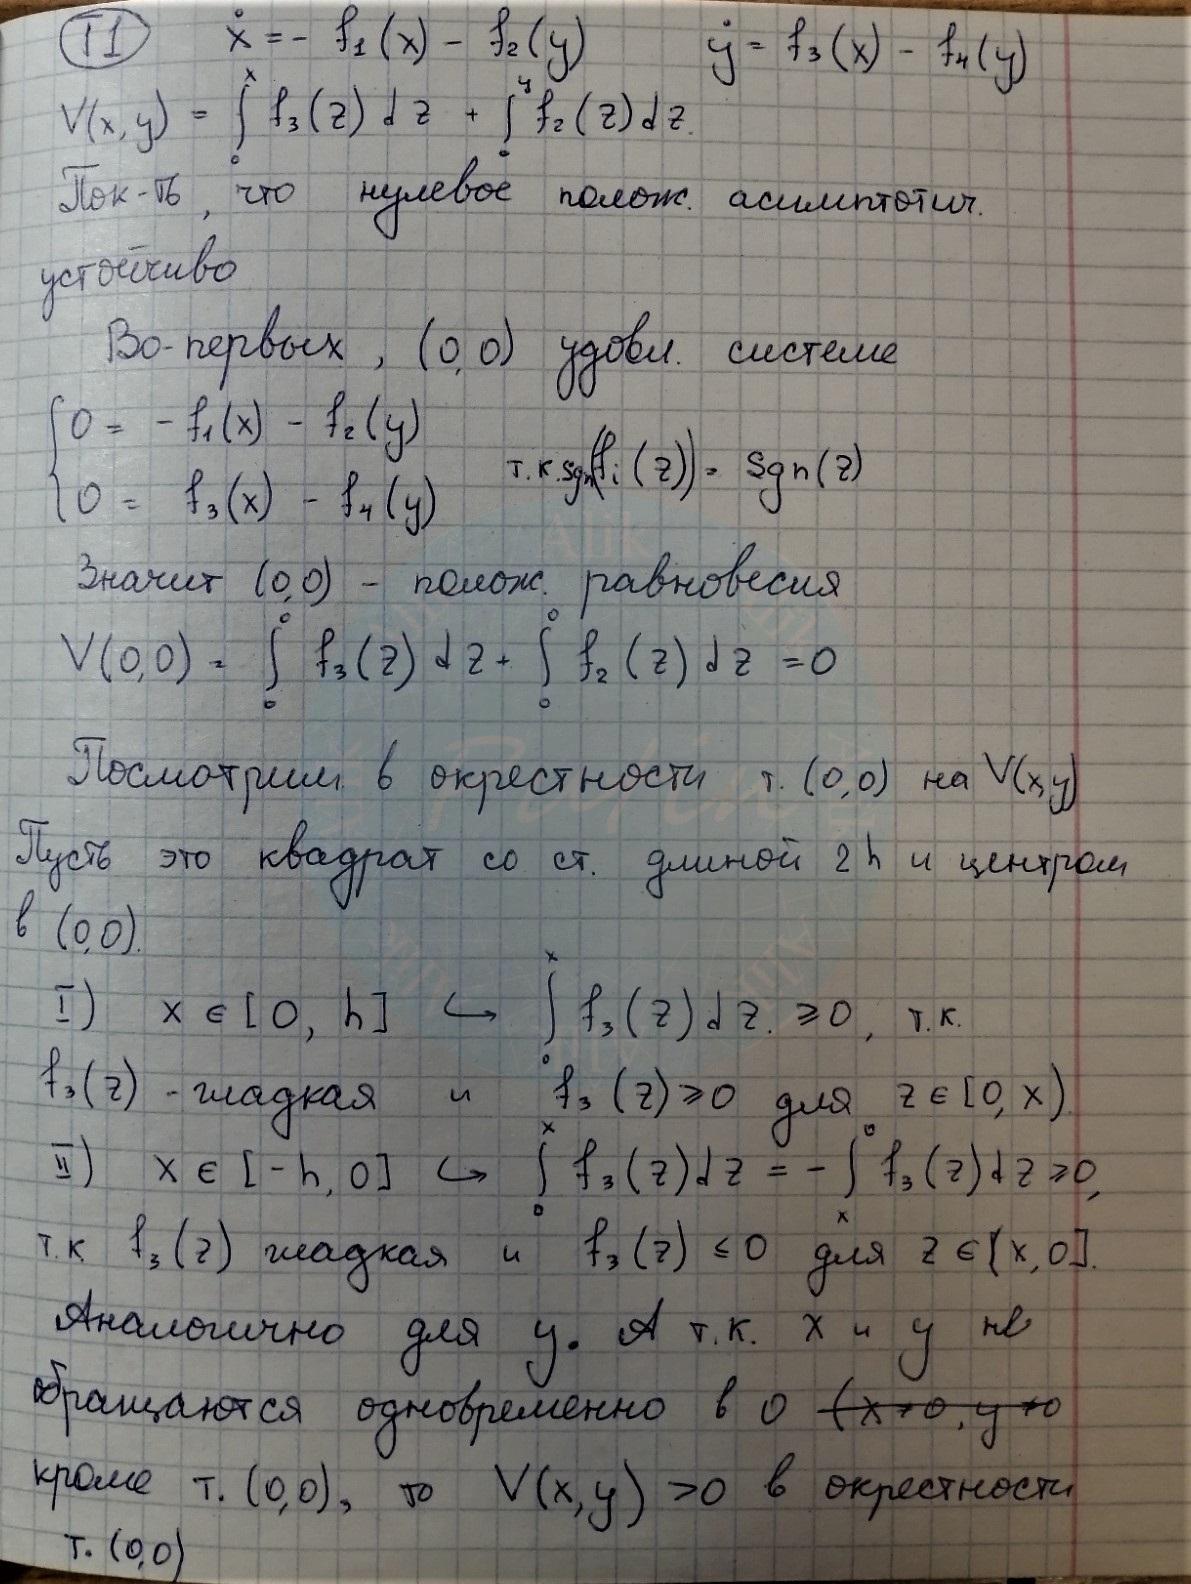 T1 ẋ = - f₁(x) - f₂(y) ẏ = f₃(x) - f₄(y)
V(x,y) = ∫₀ˣ f₃(z)dz + ∫₀ʸ f₂(z)dz.
Пок-ть, что нулевое полож. асимптотич.
устойчиво
Во-первых, (0,0) удовл. системе
{ 0 = - f₁(x) - f₂(y)
0 = f₃(x) - f₄(y) т.к. sgn(fᵢ(z)) = sgn(z)
Значит (0,0) - полож. равновесия
V(0,0) = ∫₀⁰ f₃(z)dz + ∫₀⁰ f₂(z)dz = 0
Посмотрим в окрестности т. (0,0) на V(x,y)
Пусть это квадрат со ст. длиной 2h и центром
в (0,0).
I) x ∈ [0, h] ↪ ∫₀ˣ f₃(z)dz. ⩾ 0, т.к.
f₃(z) - гладкая и f₃(z) ⩾ 0 для z ∈ [0, x)
II) x ∈ [-h, 0] ↪ ∫₀ˣ f₃(z)dz = - ∫ₓ⁰ f₃(z)dz ⩾ 0,
т.к f₃(z) гладкая и f₃(z) ⩽ 0 для z ∈ [x, 0].
Аналогично для y. А т.к. x и y не
обращаются одновременно в 0 (x≠0, y≠0
кроме т. (0,0), то V(x,y) > 0 в окрестности
т. (0,0)